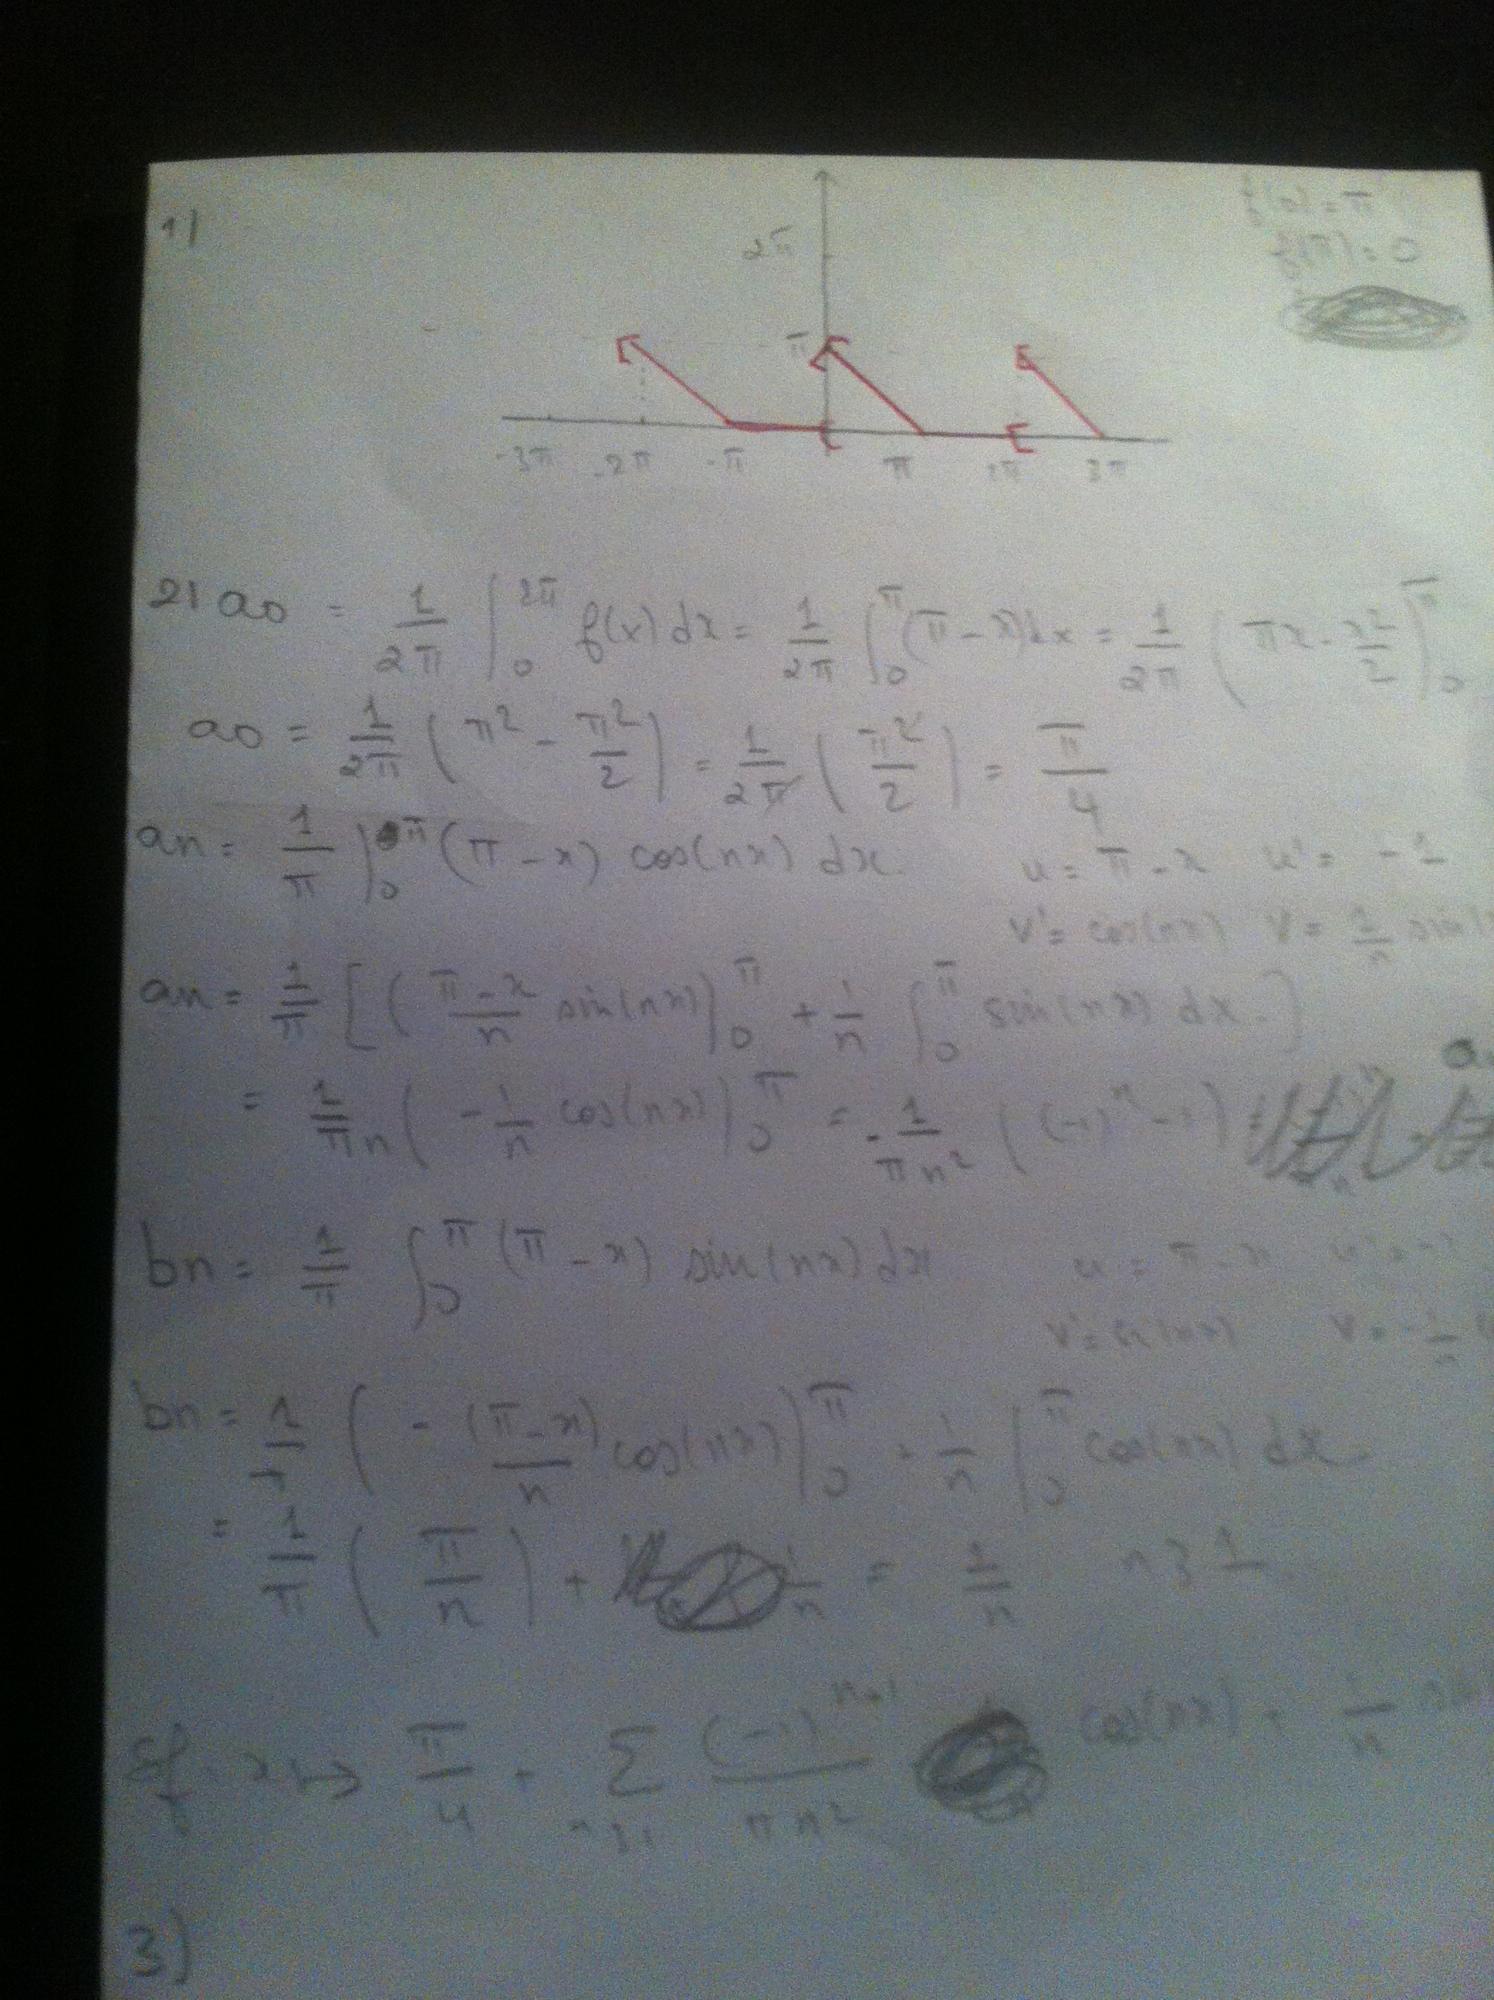 1)
f(0) = π
f(π) = 0
2π
π
-3π -2π -π π 2π 3π
2) a0 = 1/2π ∫_0^2π f(x) dx = 1/2π ∫_0^π (π - x) dx = 1/2π (πx - x²/2)_0^π
a0 = 1/2π (π² - π²/2) = 1/2π (π²/2) = π/4
an = 1/π ∫_0^π (π - x) cos(nx) dx. u = π - x u' = -1
v' = cos(nx) v = 1/n sin(
an = 1/π [(π - x/n sin(nx))_0^π + 1/n ∫_0^π sin(nx) dx.]
= 1/πn (-1/n cos(nx))_0^π = -1/πn² ((-1)^n - 1)
bn = 1/π ∫_0^π (π - x) sin(nx) dx u = π - x u' = -1
v' = v = -1/n
bn = 1/π (-(π - x)/n cos(nx))_0^π - 1/n ∫_0^π cos(nx) dx.
= 1/π (π/n) + 1/n = 1/n n ≥ 1
Sf x ↦ π/4 + Σ_n≥1 (-1)^n+1/πn² cos(nx) + 1/n sin
3)